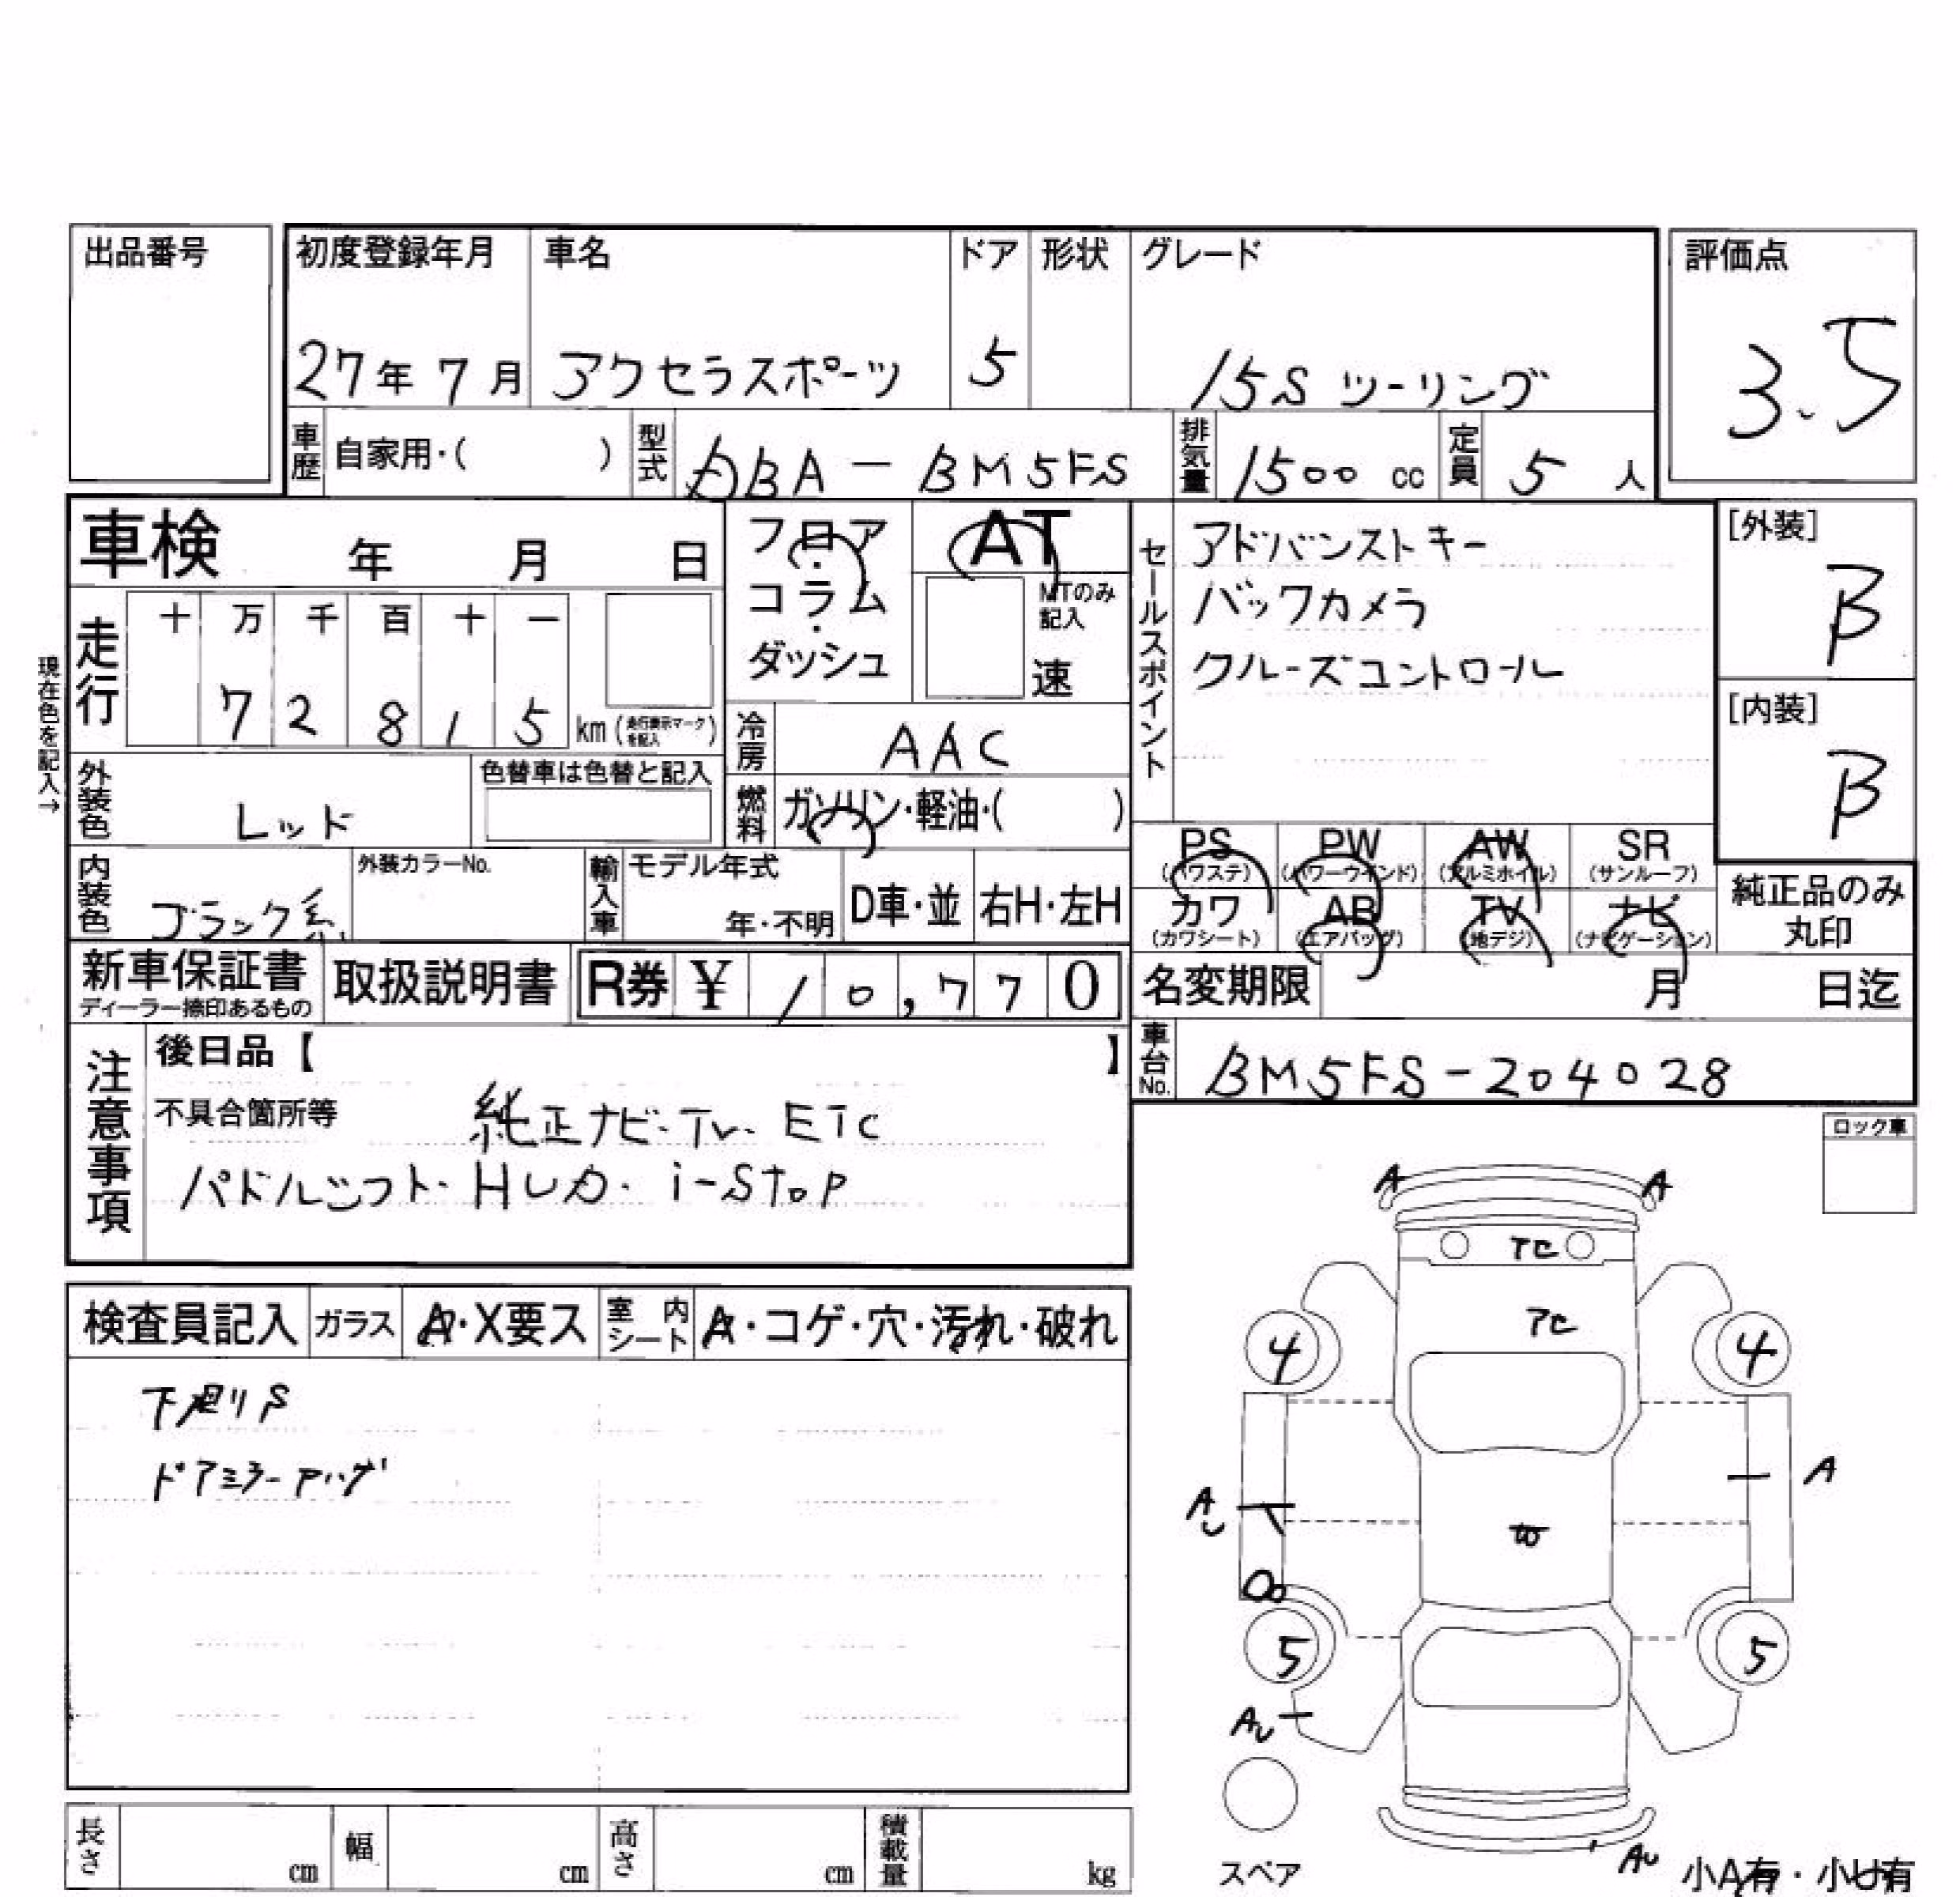 出品番号
初度登録年月 車名 ドア 形状 グレード 評価点
27年 7月 アクセラスポーツ 5 15S ツーリング 3.5
車歴 自家用・( ) 型式 DBA - BM5FS 排気量 1500 cc 定員 5 人
車検 年 月 日
フロア・コラム・ダッシュ
AT
MTのみ記入
速
セールスポイント
アドバンストキー
バックカメラ
クルーズコントロール
[外装]
B
[内装]
B
現在色を記入→
走行 十 万 千 百 十 一
7 2 8 1 5 km (走行表示マークを記入)
冷房 AAC
外装色 レッド 色替車は色替と記入
燃料 ガソリン・軽油・( )
PS (パワステ) PW (パワーウインド) AW (アルミホイル) SR (サンルーフ)
カワ (カワシート) AB (エアバッグ) TV (地デジ) ナビ (ナビゲーション)
純正品のみ丸印
内装色 ブラック系 外装カラーNo. 輸入車 モデル年式 年・不明 D車・並 右H・左H
新車保証書 ディーラー捺印あるもの 取扱説明書 R券 ¥ 10,770
名変期限 月 日迄
車台No. BM5FS-204028
注意事項
後日品【 】
不具合箇所等 純正ナビ・TV・ETC
パドルシフト・HUD・i-stop
ロック車
検査員記入 ガラス A・X要ス 室内シート A・コゲ・穴・汚れ・破れ
下廻りS
A A
4 4
A
A U
5 5
AU
AU
スペア
小A有・小U有
長さ cm 幅 cm 高さ cm 積載量 kg